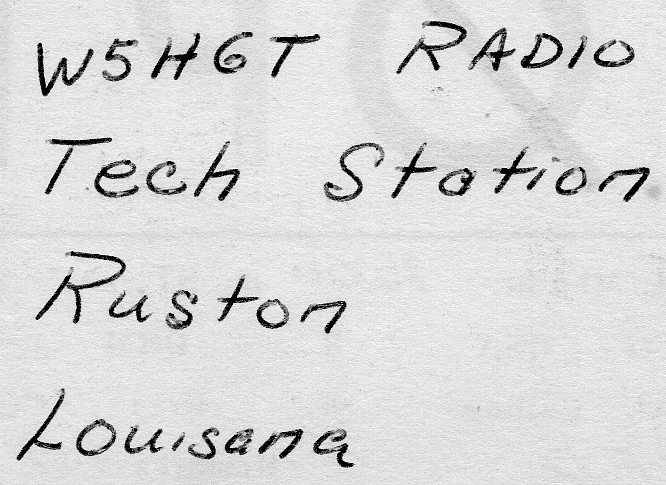 W5HGT RADIO
Tech Station
Ruston
Louisana